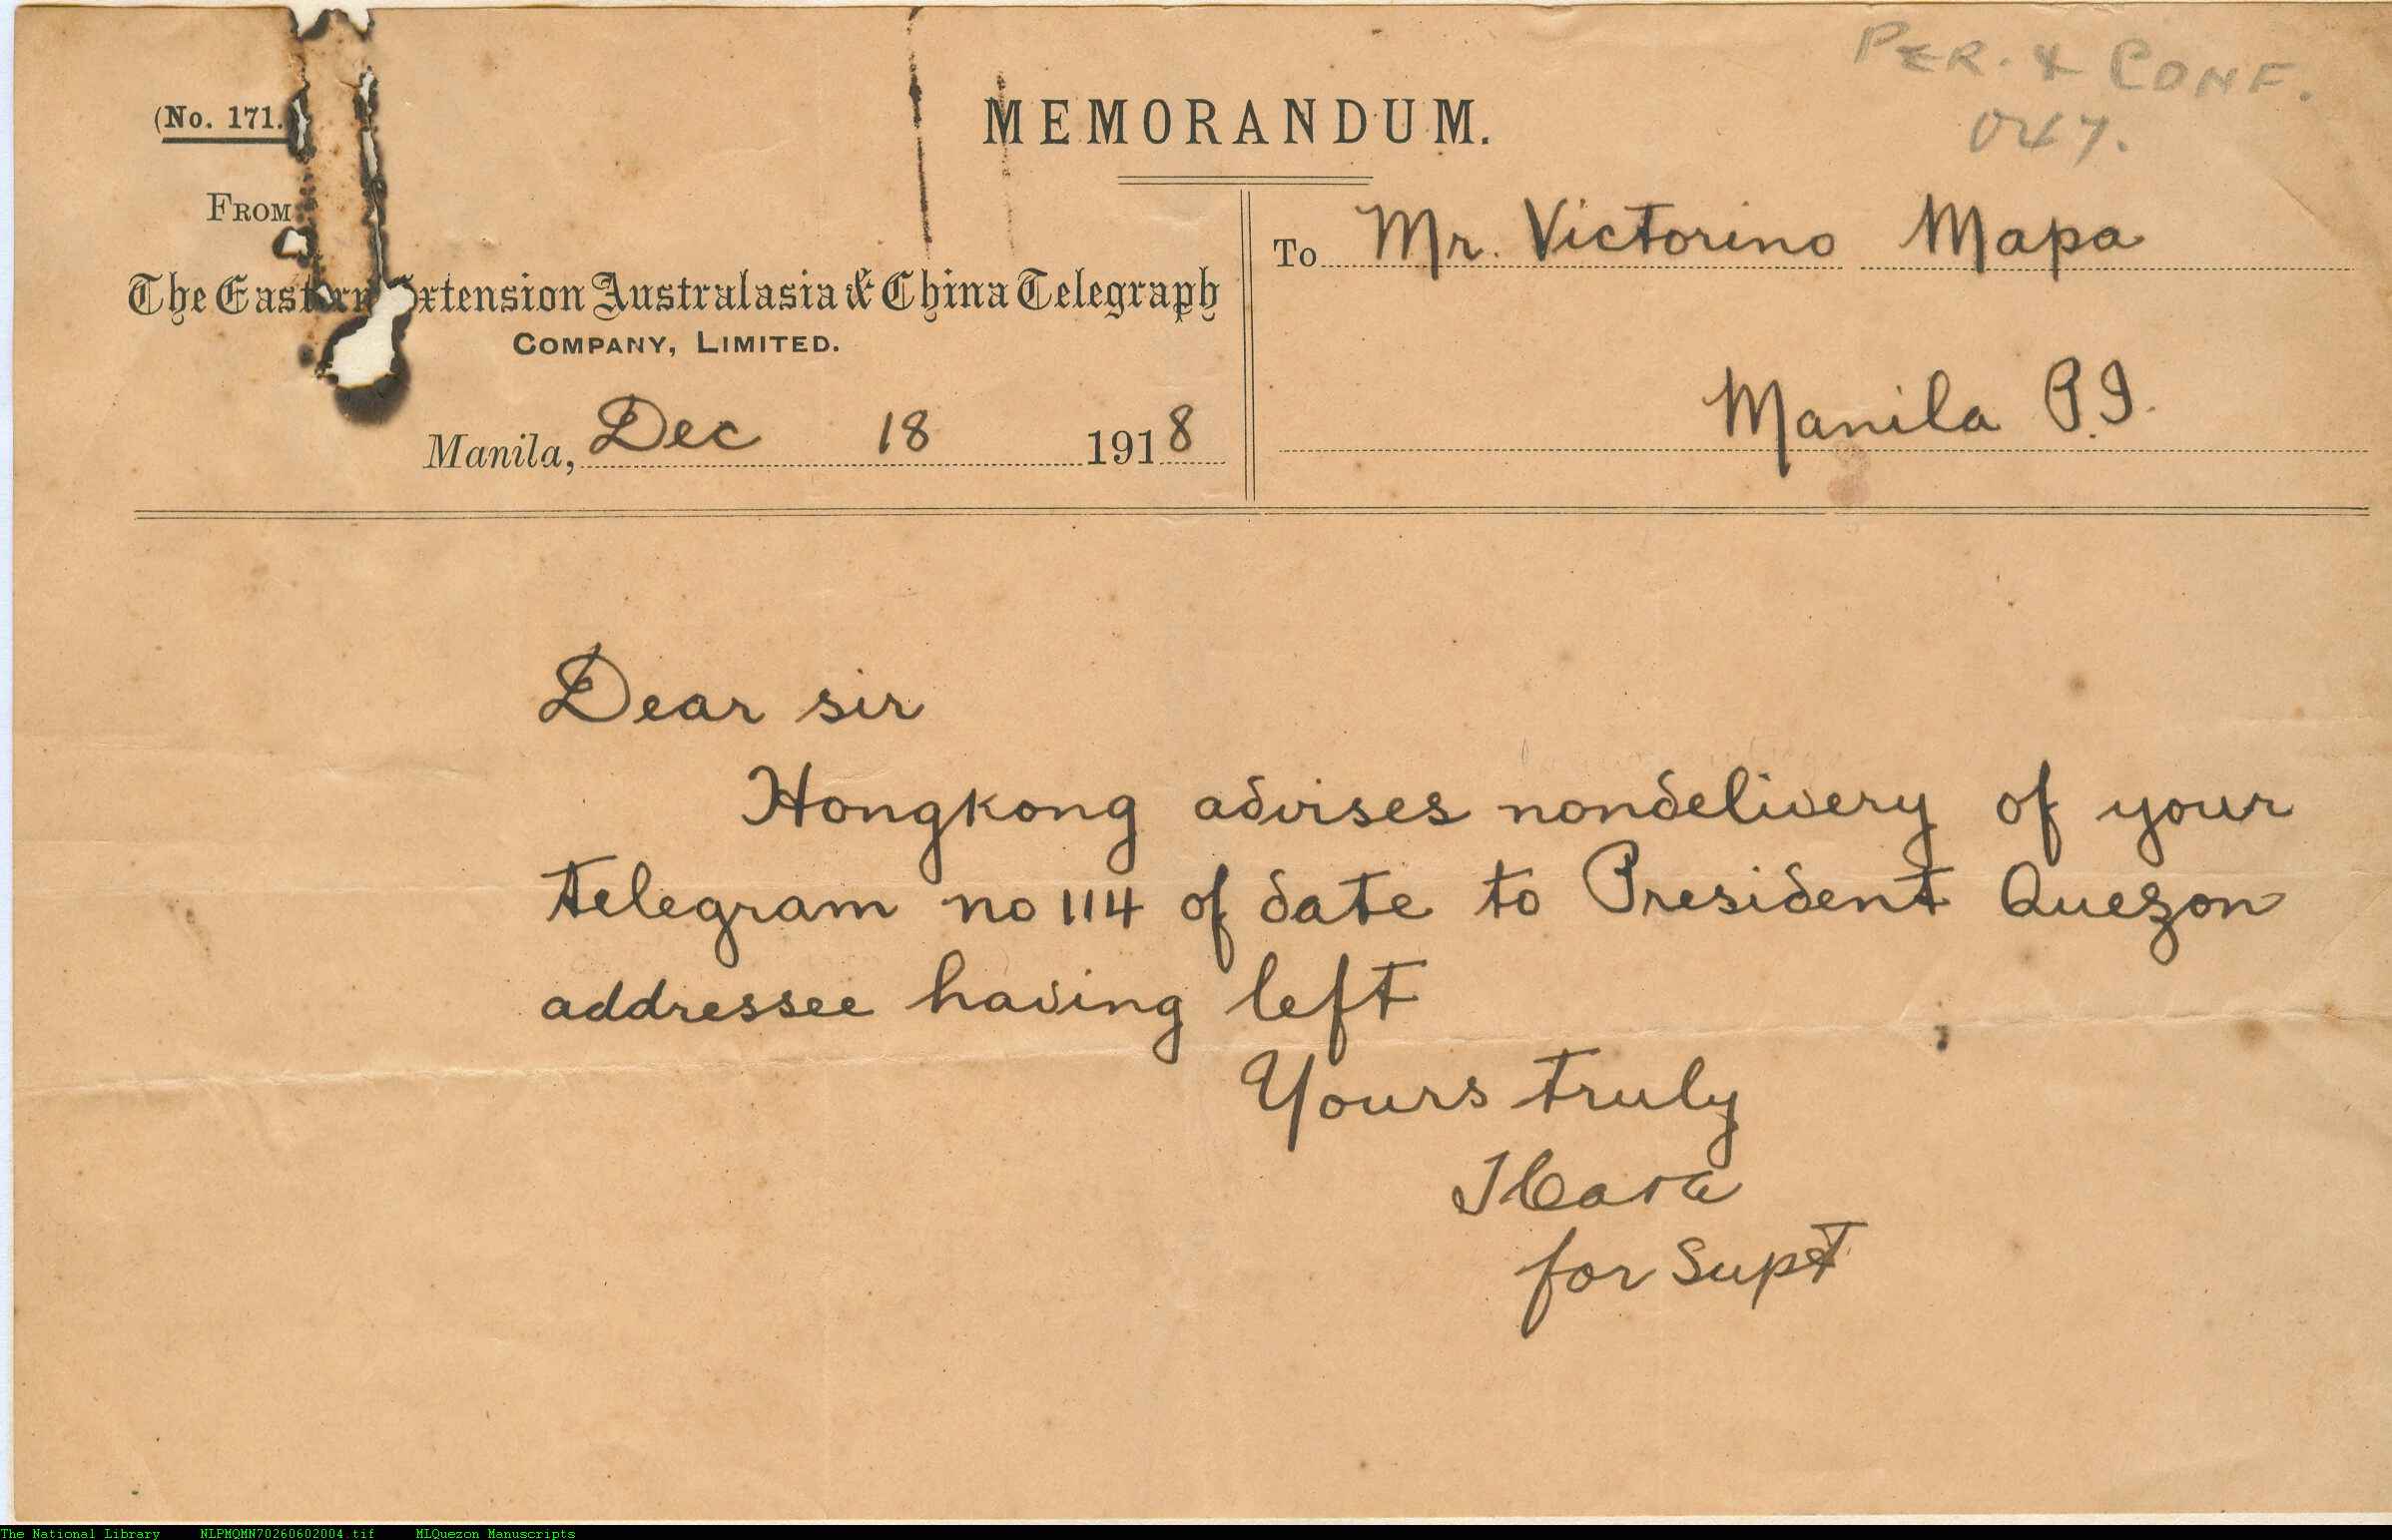 PER. & CONF.
047.
(No. 171.
MEMORANDUM.
FROM
The Eastern Extension Australasia & China Telegraph
COMPANY, LIMITED.
Manila, Dec 18 1918
To Mr. Victorino Mapa
Manila P.I.
Dear sir
Hongkong advises nondelivery of your
telegram no 114 of date to President Quezon
addressee having left
Yours truly
for Supt
The National Library NLPMQMN70260602004.tif MLQuezon Manuscripts